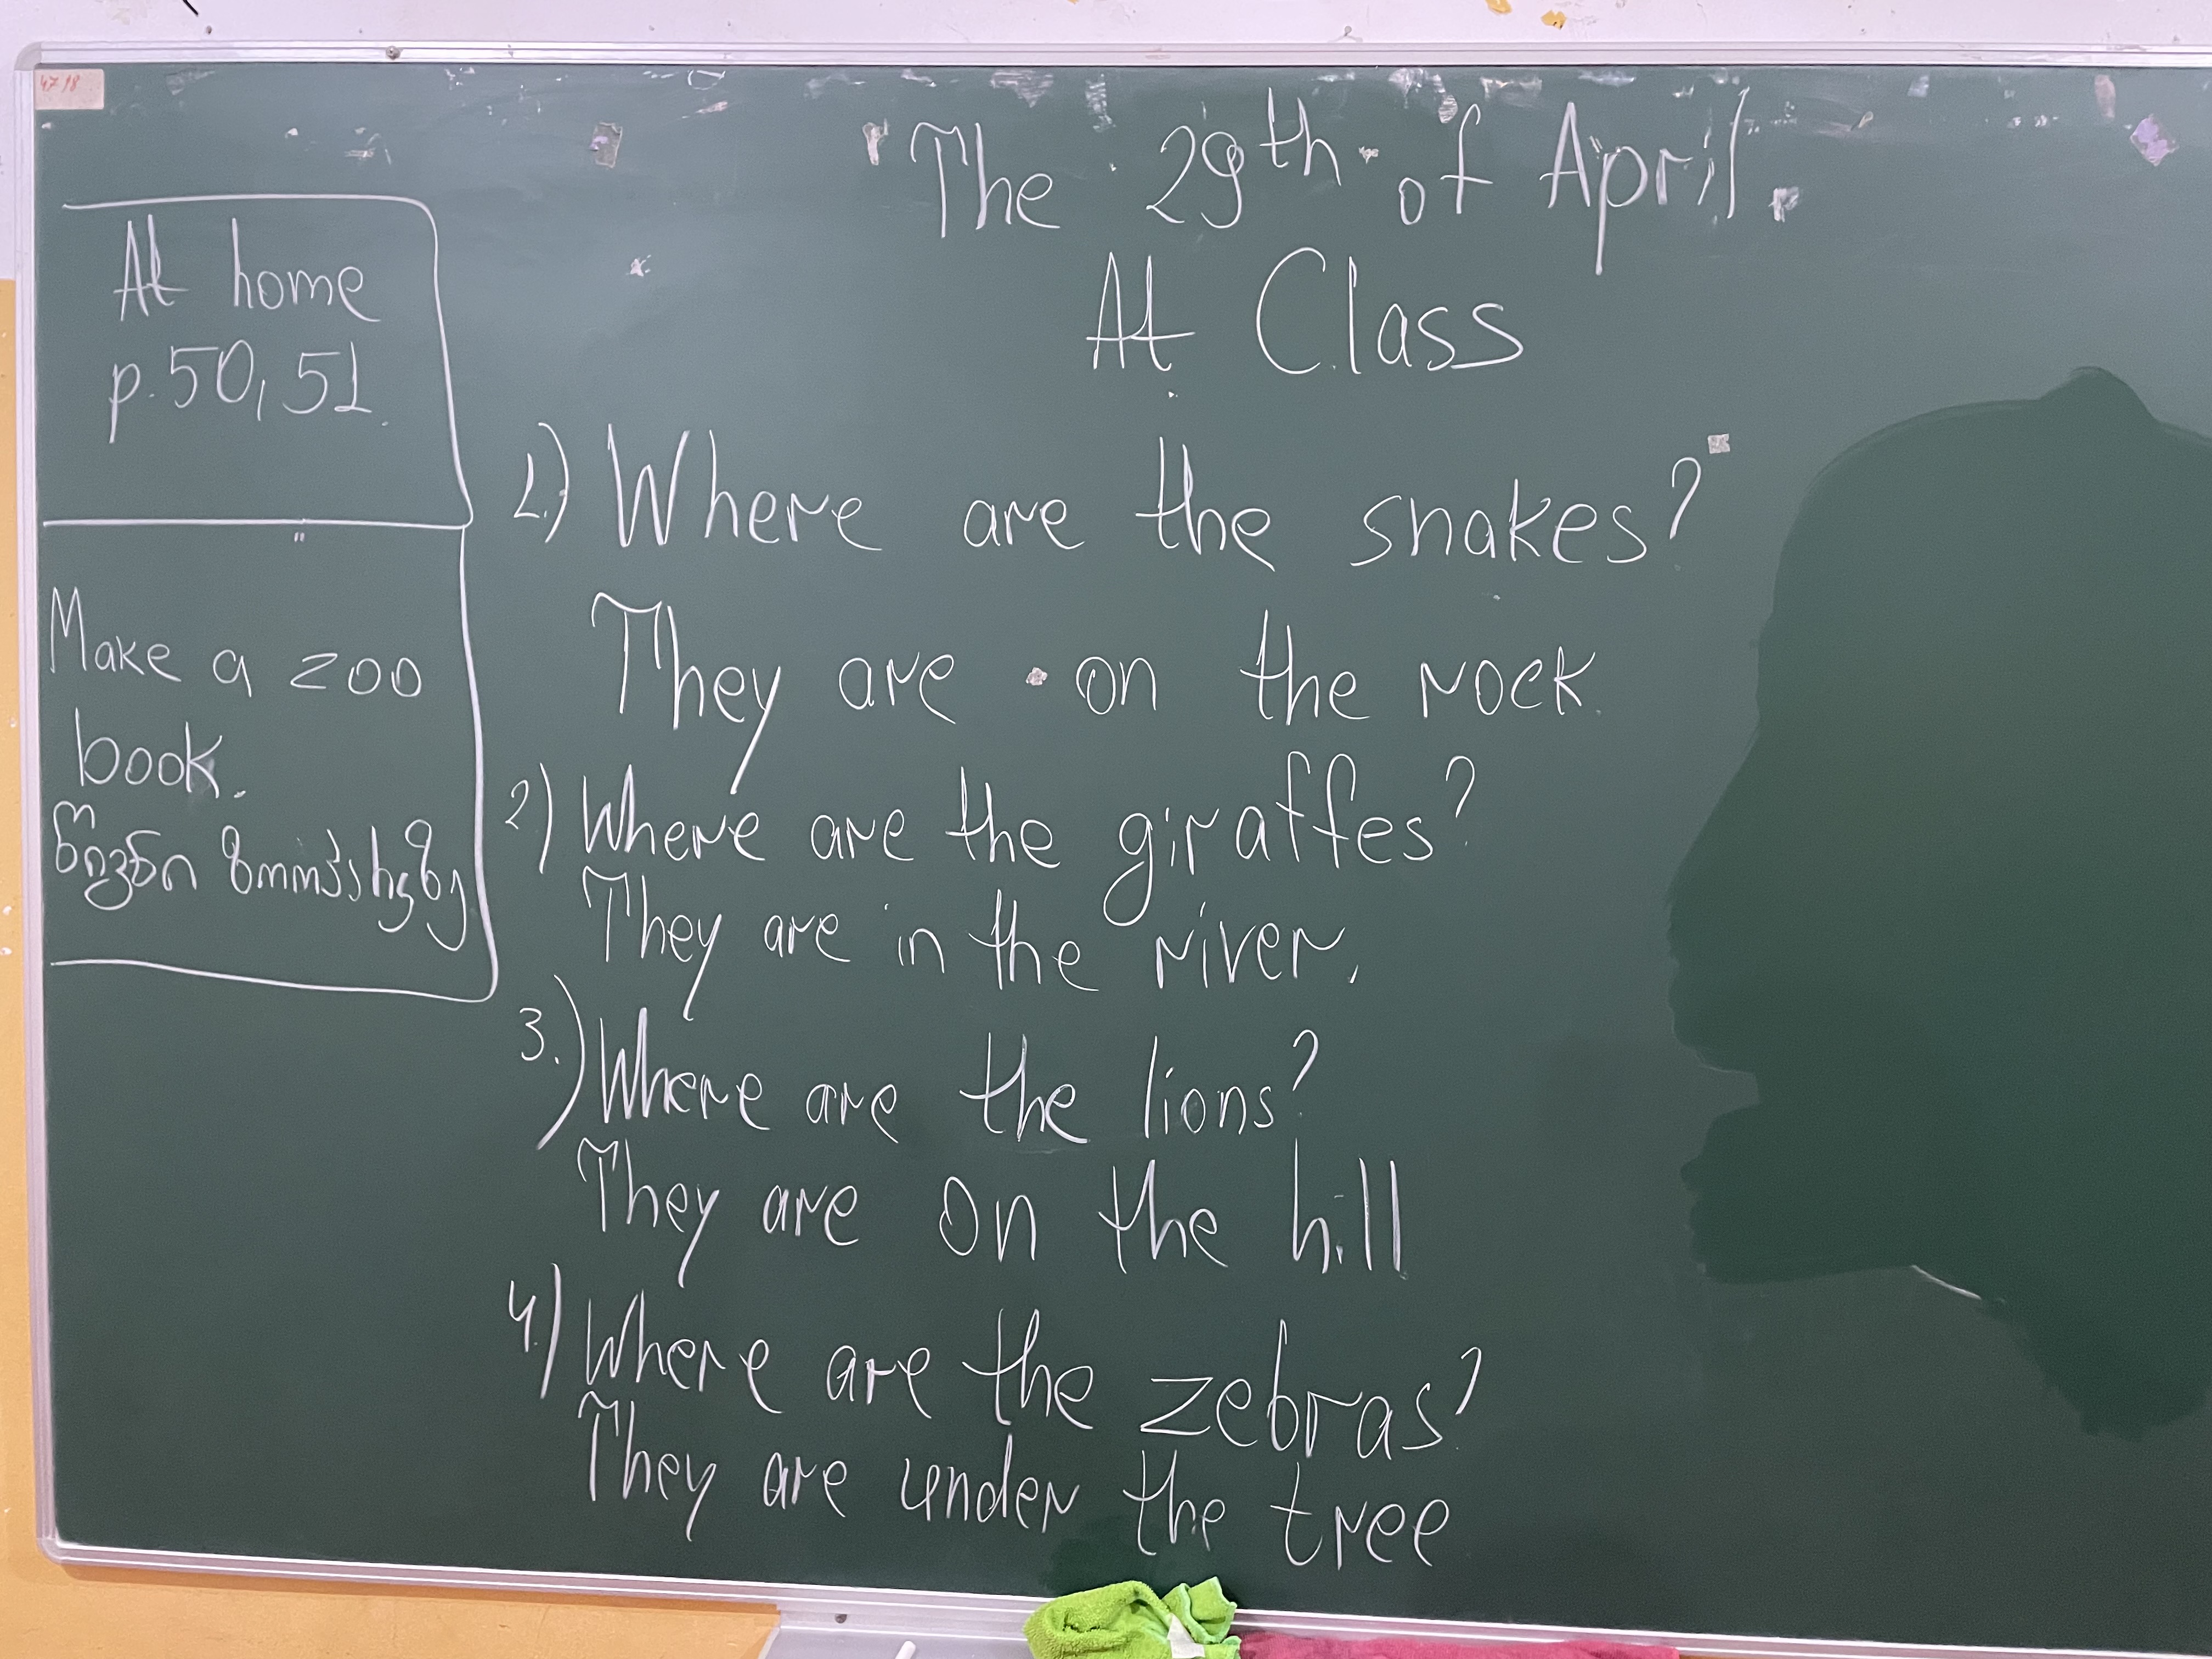 The 29th of April.
At Class
At home
p. 50, 51.
Make a zoo
book.
წიგნი ზოოპარკზე
1.) Where are the snakes?
They are on the rock.
2) Where are the giraffes?
They are in the river.
3.) Where are the lions?
They are on the hill
4.) Where are the zebras?
They are under the tree